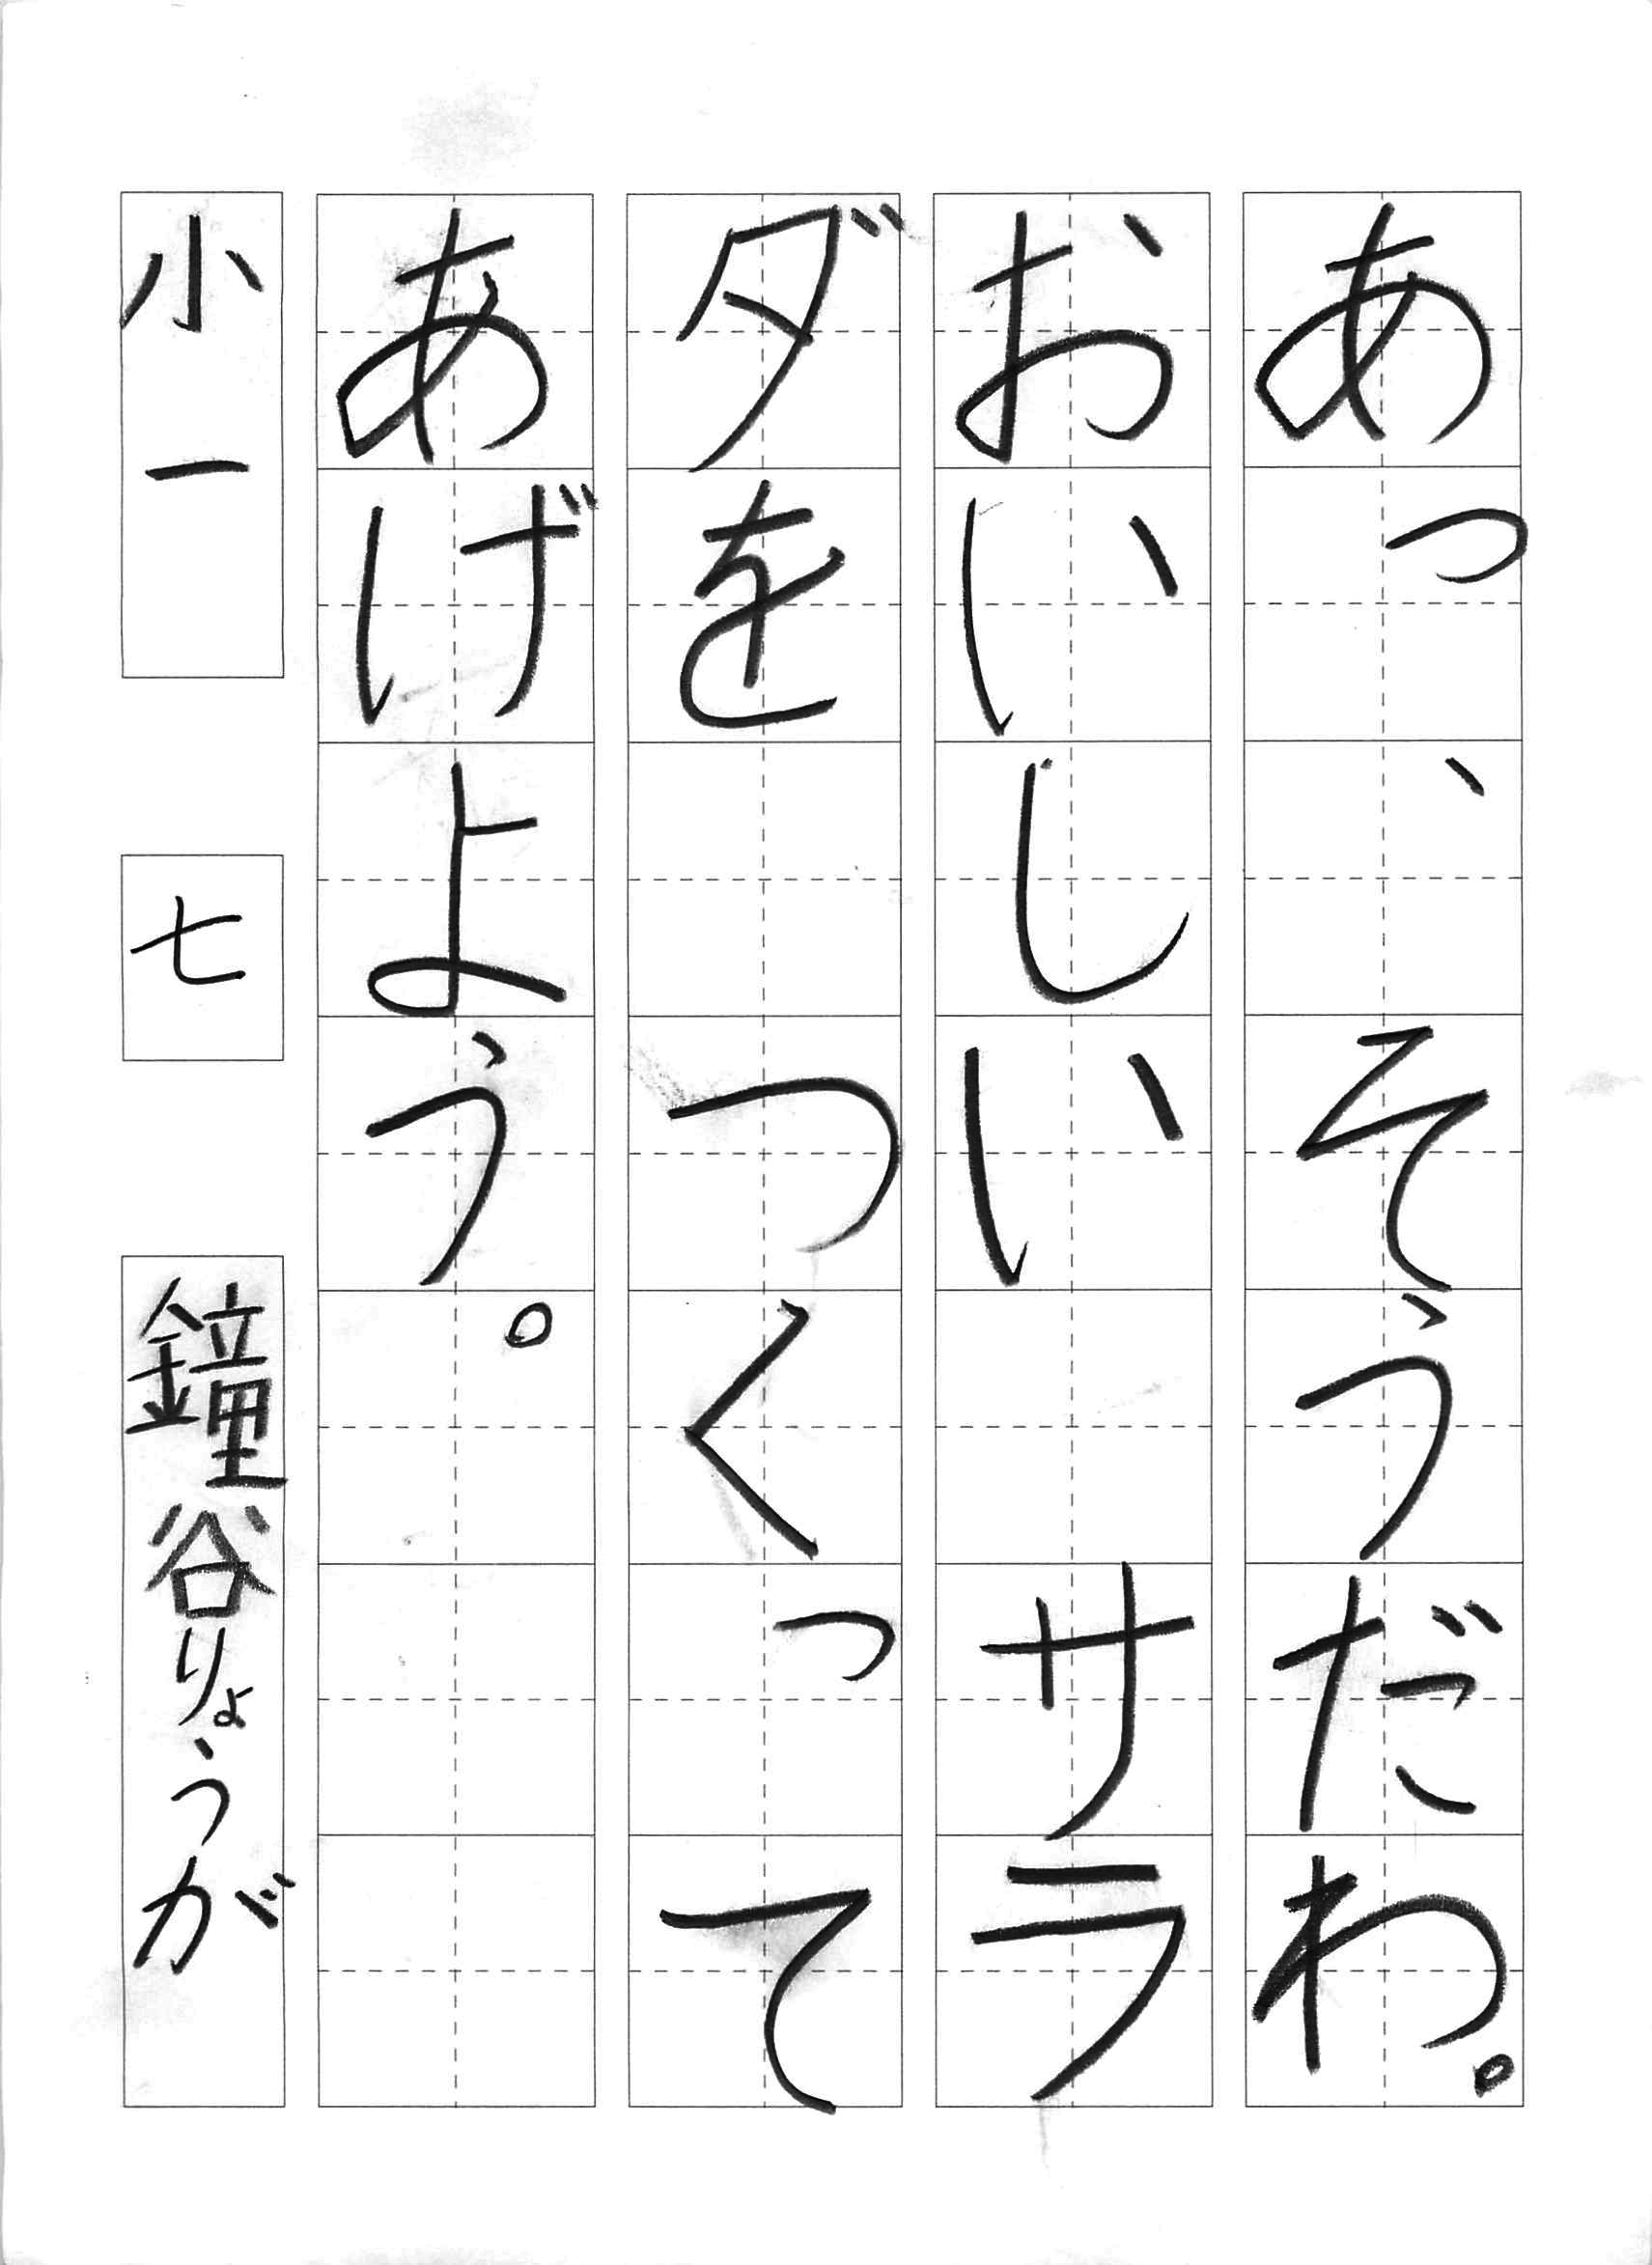 あっ、そうだわ。
おいしい サラ
ダを つくって
あげよう。
小一 七 鐘谷りょうが